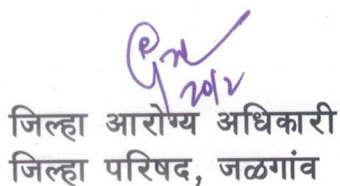 २०/२
जिल्हा आरोग्य अधिकारी
जिल्हा परिषद, जळगांव